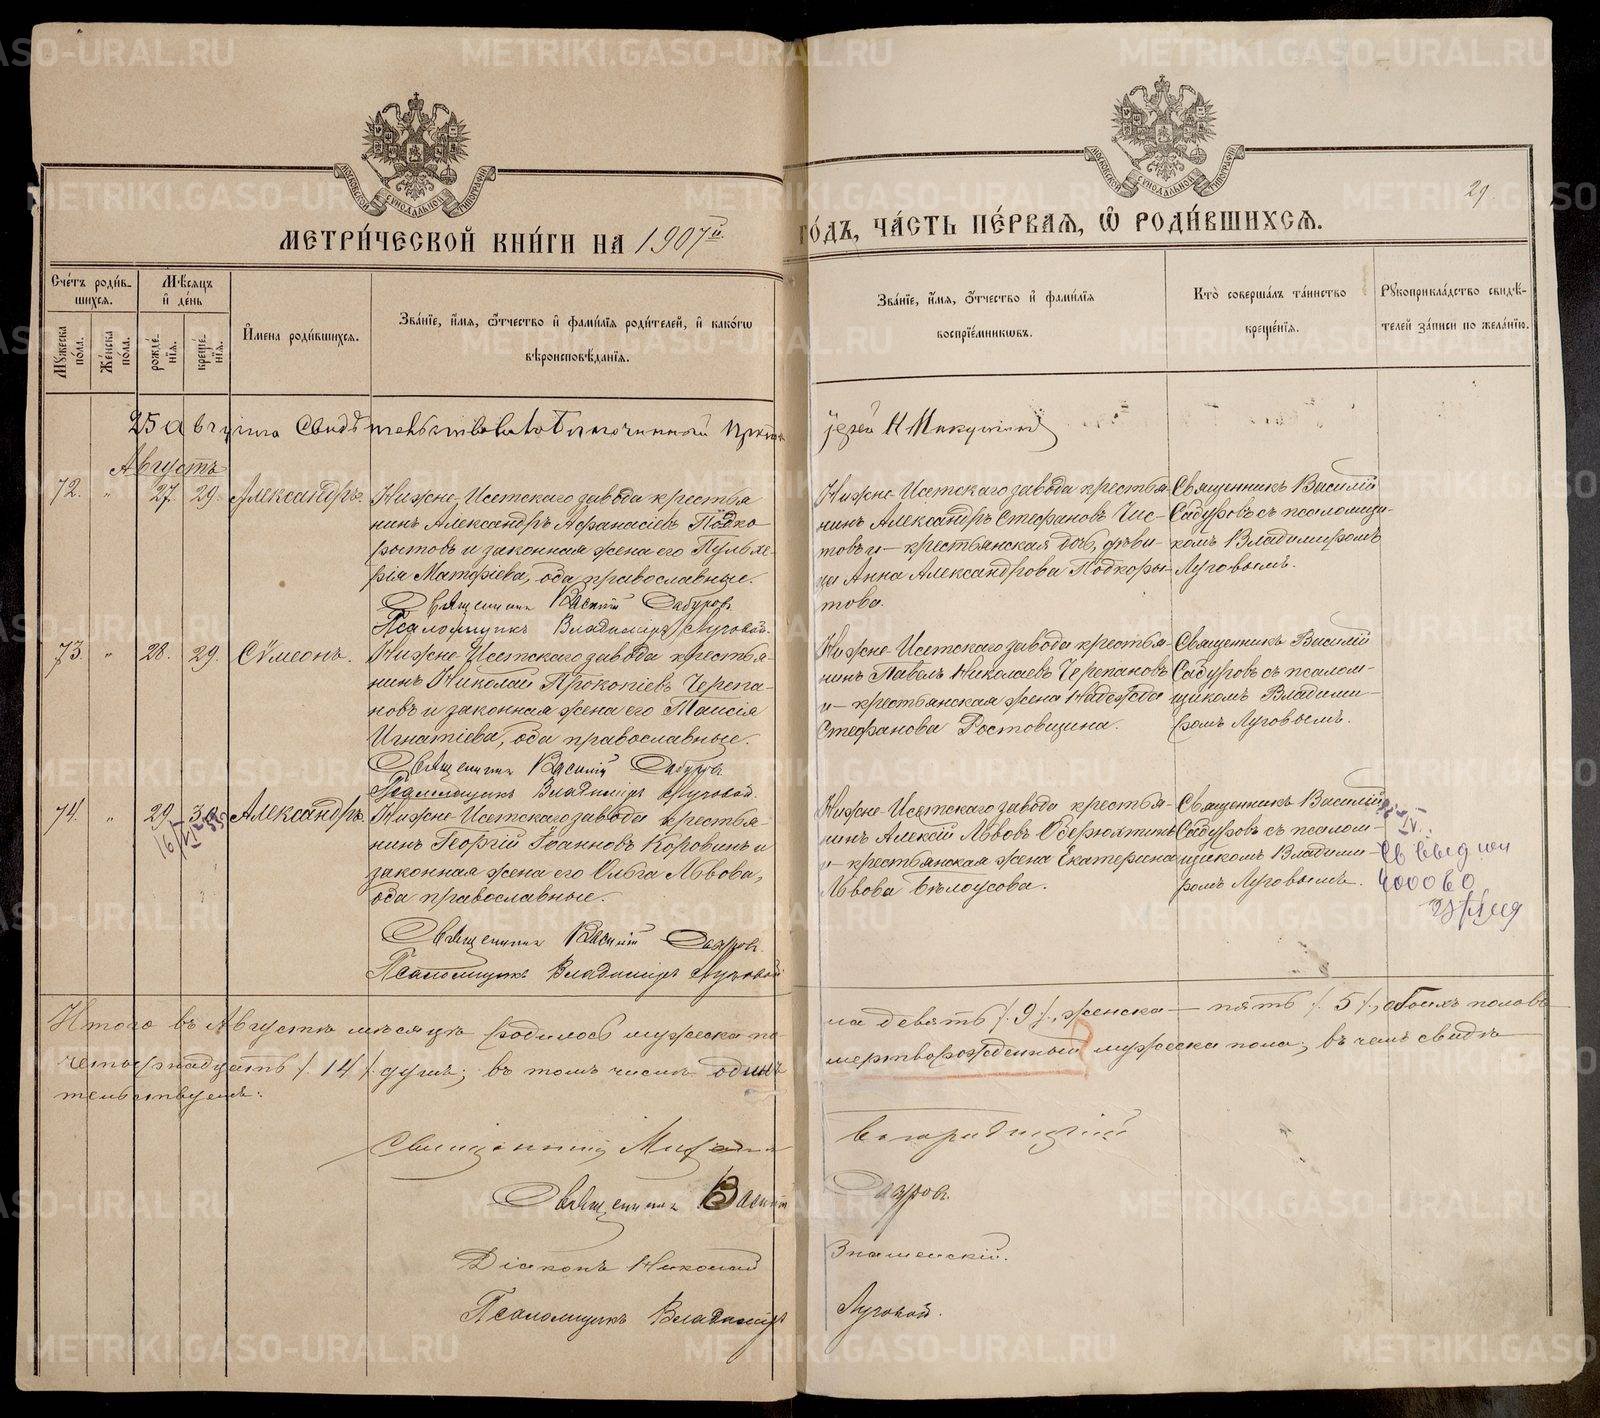 МЕТРИ́ЧЕСКОЙ КНИ́ГИ НА 1907й.
ГО́ДЪ, ЧА́СТЬ ПЕ́РВАЯ, Ѿ РОДИ́ВШИХСѦ.
29
Сче́тъ роди́в-
шихсѧ.
Мѣ́сѧцъ
и҆ де́нь
Мꙋ́жеска по́ла.
Же́нска по́ла.
рожде́-
нїѧ.
креще́-
нїѧ.
И҆мена роди́вшихсѧ.
Зва́нїе, и҆́мѧ, ѻ҆́тчество и҆ фами́лїѧ роди́телей, и҆ како́гѡ
вѣроисповѣ́данїѧ.
Зва́нїе, и҆́мѧ, ѻ҆́тчество и҆ фами́лїѧ
воспрїе́мникѡвъ.
Кто̀ соверша́лъ та́инство
креще́нїѧ.
Рꙋкоприкла́дство свидѣ́-
телей за́писи по жела́нїю.
25 августа Свидѣтельствовалъ Благочинный
Іерей Н Микушинъ
Августъ
72. " 27. 29. Александръ.
Нижне-Исетскаго завода крестья
нинъ Александръ Афанасіевъ Подко-
рытовъ и законная жена его Пульхе-
рія Матфіева, оба православные.
Священникъ Василій Сабуровъ
Псаломщикъ Владиміръ Луговой.
Нижне-Исетскаго завода крестья-
нинъ Александръ Стефановъ Чис-
товъ и – крестьянская дочь, дѣви-
ца Анна Александрова Подкоры-
това.
Священникъ Василій
Сабуровъ съ псаломщи-
комъ Владиміромъ
Луговымъ.
73. " 28. 29. Сѵмеонъ.
Нижне-Исетскаго завода крестья-
нинъ Николай Прокопіевъ Черепа-
новъ и законная жена его Таисія
Игнатіева, оба православные.
Священникъ Василій Сабуровъ
Псаломщикъ Владиміръ Луговой.
Нижне-Исетскаго завода крестья-
нинъ Павелъ Николаевъ Черепановъ
и – крестьянская жена Надежда
Стефанова Ростовщина.
Священникъ Василій
Сабуровъ съ псалом-
щикомъ Владими-
ромъ Луговымъ.
74. " 29. 30. Александръ.
Нижне-Исетскаго завода крестья-
нинъ Георгій Іоанновъ Коровинъ и
законная жена его Ольга Львова,
оба православные.
Священникъ Василій Сабуровъ
Псаломщикъ Владиміръ Луговой
Нижне-Исетскаго завода крестья-
нинъ Алексій Львовъ Обертюхтинъ
и – крестьянская жена Екатерина
Львова Бѣлоусова.
Священникъ Василій
Сабуровъ съ псалом-
щикомъ Владими-
ромъ Луговымъ.
Итого въ Августѣ мѣсяцѣ родилось мужеска по-
ла девять /9/, женска – пять /5/, обоихъ половъ
четырнадцать /14/ душъ; въ томъ числѣ одинъ
мертворожденный мужеска пола; въ чемъ свидѣ
тельствуемъ:
Священникъ Михаилъ
Богородицкій
Священникъ Василій
Сабуровъ.
Діаконъ Николай
Знаменскій.
Псаломщикъ Владиміръ
Луговой.
METRIKI.GASO-URAL.RU